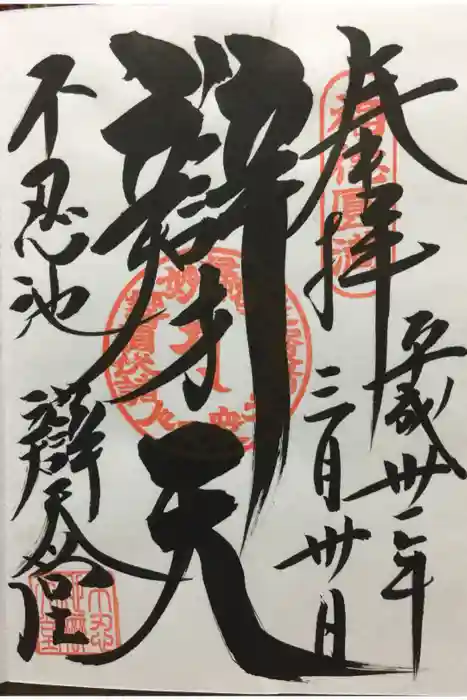 奉拝
平成卅一年
三月卅日
辯才天
不忍池
辯天堂